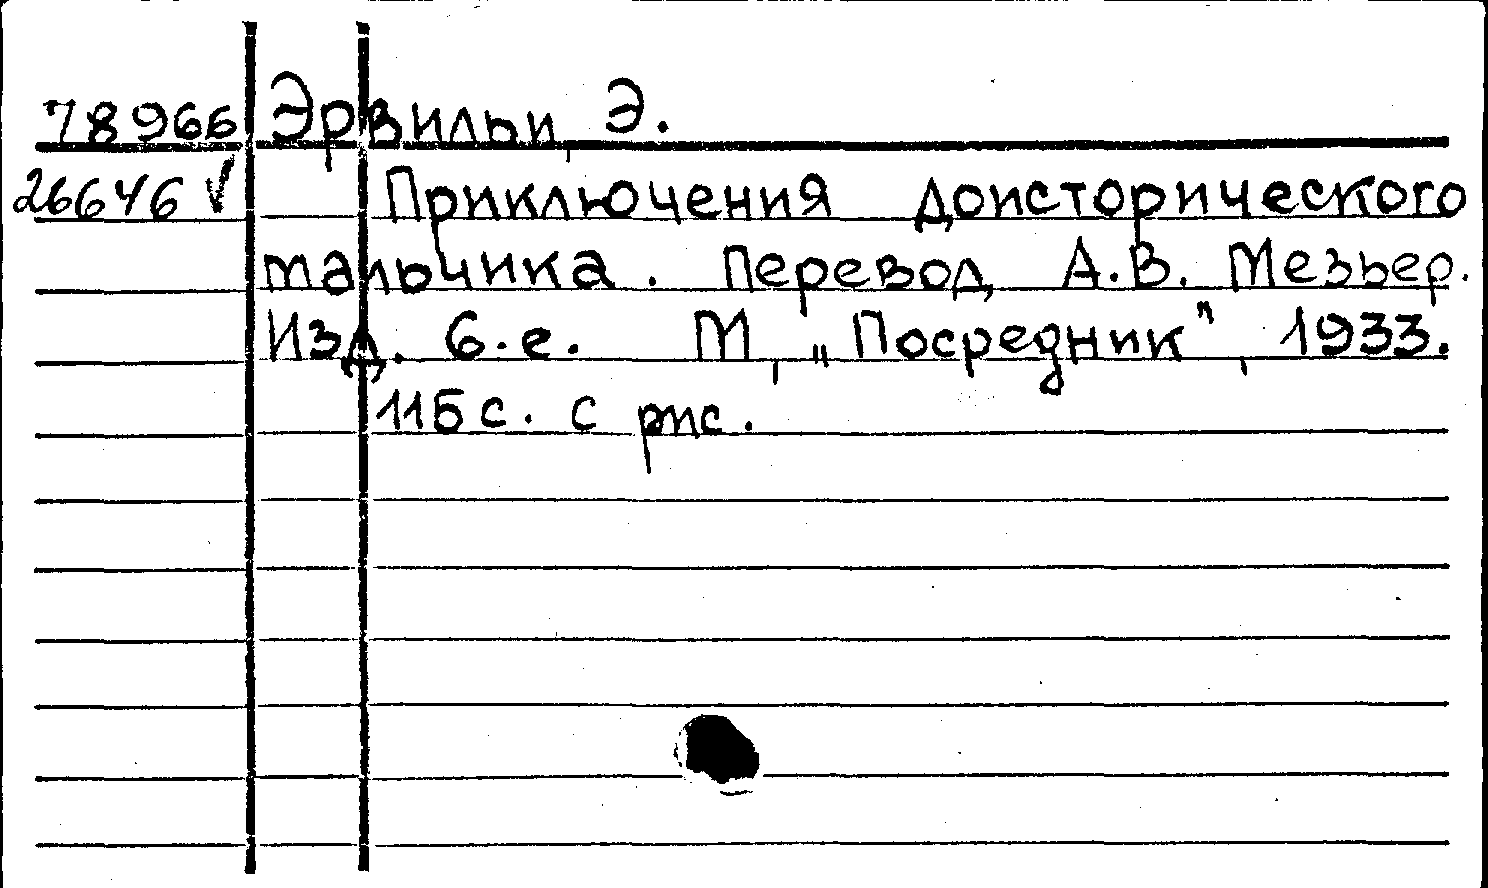 78966 Эрвильи, Э.
26646 √ Приключения доисторического
мальчика. Перевод А.В. Мезьер.
Изд. 6.е. М, „Посредник", 1933.
115 с. с рис.